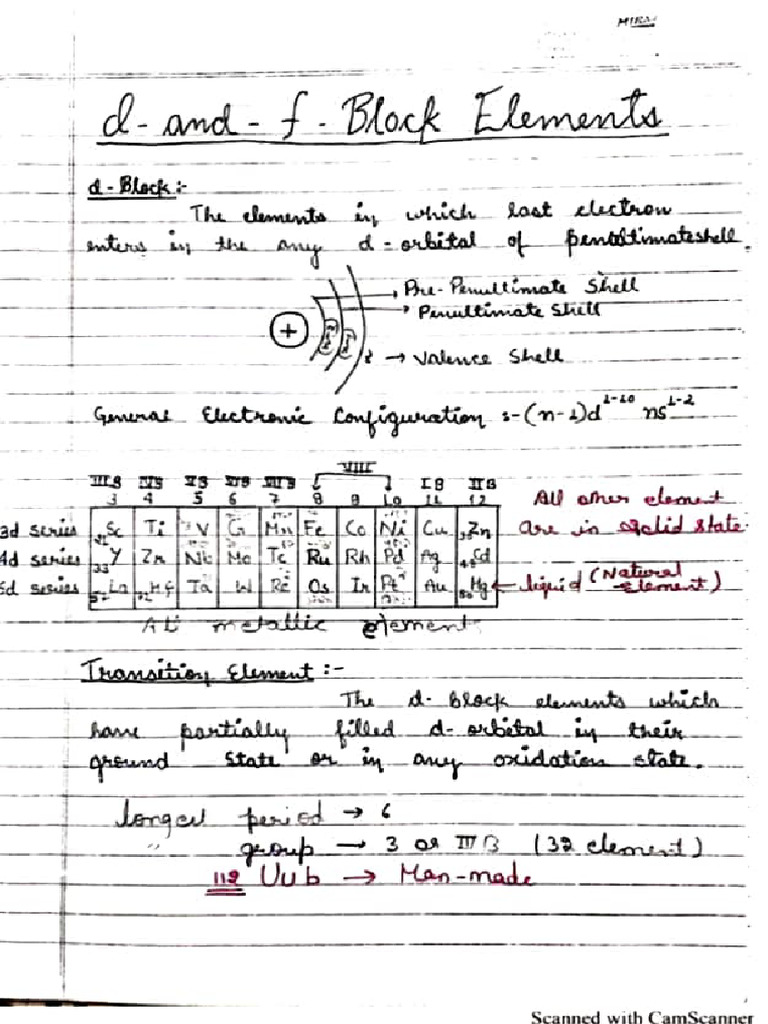 MIRAJ
d- and - f - Block Elements
d-Block:-
The elements in which last electron
enters in the any d-orbital of penultimateshell.
Pre-Penultimate Shell
Penultimate Shell
+
→ Valence Shell
General Electronic Configuration :- (n-1)d¹⁻¹⁰ ns¹⁻²
VIII
III B IV B V B VI B VII B I B II B
3 4 5 6 7 8 9 10 11 12
All other element
3d series 21Sc Ti V Cr Mn Fe Co Ni Cu 30Zn are in solid state
4d series 39Y Zr Nb Mo Tc Ru Rh Pd Ag 48Cd
5d series 57La 72Hf Ta W Re Os Ir Pt Au 80Hg ← liquid (Natural element)
All metallic element
Transition Element :-
The d-block elements which
have partially filled d-orbital in their
ground state or in any oxidation state.
longest period → 6
" group → 3 or III B (32 element)
112 Uub → Man-made
Scanned with CamScanner